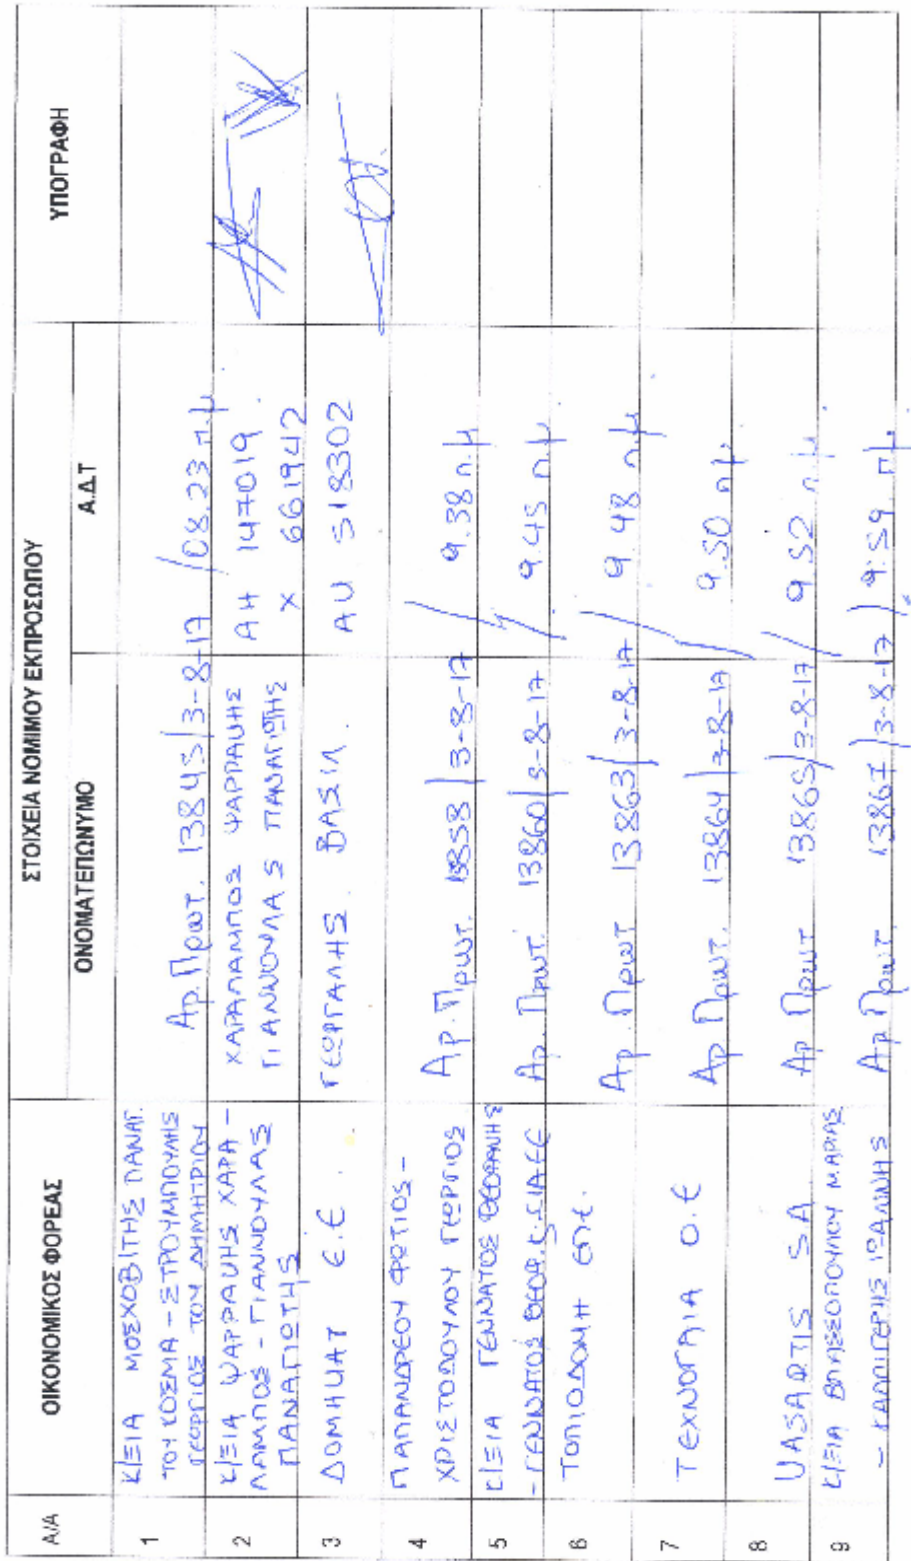 ΣΤΟΙΧΕΙΑ ΝΟΜΙΜΟΥ ΕΚΠΡΟΣΩΠΟΥ
Α/Α ΟΙΚΟΝΟΜΙΚΟΣ ΦΟΡΕΑΣ ΟΝΟΜΑΤΕΠΩΝΥΜΟ Α.Δ.Τ ΥΠΟΓΡΑΦΗ
1
Κ/ΞΙΑ ΜΟΣΧΟΒΙΤΗΣ ΠΑΝΑΓ.
ΤΟΥ ΚΟΣΜΑ - ΣΤΡΟΥΜΠΟΥΛΗΣ
ΓΕΩΡΓΙΟΣ ΤΟΥ ΔΗΜΗΤΡΙΟΥ
Αρ. Πρωτ. 13845/3-8-17 / 08.23 π.μ
2
Κ/ΞΙΑ ΨΑΡΡΑΚΗΣ ΧΑΡΑ-
ΛΑΜΠΟΣ - ΓΙΑΝΝΟΥΛΑΣ
ΠΑΝΑΓΙΩΤΗΣ
ΧΑΡΑΛΑΜΠΟΣ ΨΑΡΡΑΚΗΣ ΑΗ 147019
ΓΙΑΝΝΟΥΛΑΣ ΠΑΝΑΓΙΩΤΗΣ Χ 661942
3
ΔΟΜΗΚΑΤ Ε.Ε.
ΓΕΩΡΓΑΛΗΣ ΒΑΣΙΛ. ΑΚ 518302
4
ΠΑΠΑΝΔΡΕΟΥ ΦΩΤΙΟΣ -
ΧΡΙΣΤΟΠΟΥΛΟΥ ΓΕΩΡΓΙΟΣ
Αρ. Πρωτ. 13858/3-8-17 / 9.38 π.μ
5
Κ/ΞΙΑ ΓΕΝΝΑΤΟΣ ΘΕΟΦΑΝΗΣ
- ΓΕΝΝΑΤΟΣ ΘΕΟΦ. & ΣΙΑ ΕΕ
Αρ. Πρωτ. 13860/3-8-17 / 9.45 π.μ
6
ΤΟΠΙΟΔΟΜΗ ΕΠΕ.
Αρ. Πρωτ 13863/3-8-17 / 9.48 π.μ
7
ΤΕΧΝΟΓΑΙΑ Ο.Ε
Αρ Πρωτ. 13864/3-8-17 / 9.50 π.μ.
8
VASARTIS SA
Αρ Πρωτ 13865/3-8-17 / 9.52 π.μ.
9
Κ/ΞΙΑ ΒΛΑΣΣΟΠΟΥΛΟΥ ΜΑΡΙΑΣ
- ΚΑΛΛΙΓΕΡΗΣ ΙΩΑΝΝΗΣ
Αρ Πρωτ. 13867/3-8-17 / 9.59 π.μ.